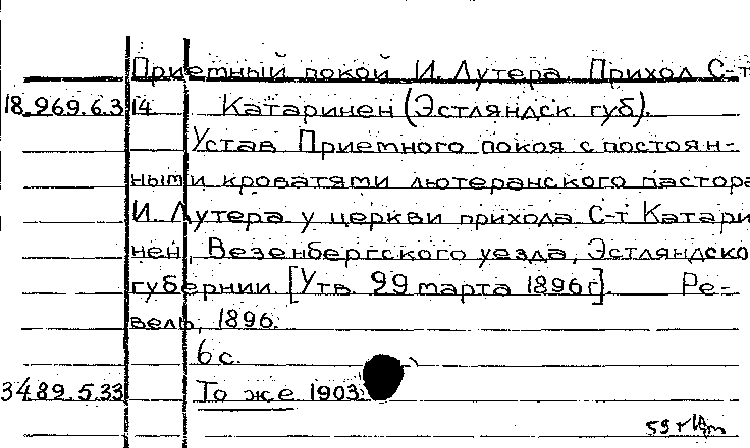 Приемный покой И. Лутера. Приход С-т
18.969.6.314 Катаринен (Эстляндск. губ).
Устав Приемного покоя с постоян-
ными кроватями лютеранского пастора
И. Лутера у церкви прихода С-т Катари
нен, Везенбергского уезда, Эстляндско
губернии. [Утв. 29 марта 1896г]. Ре-
вель, 1896.
6 с.
3489.5.33 То же 1903